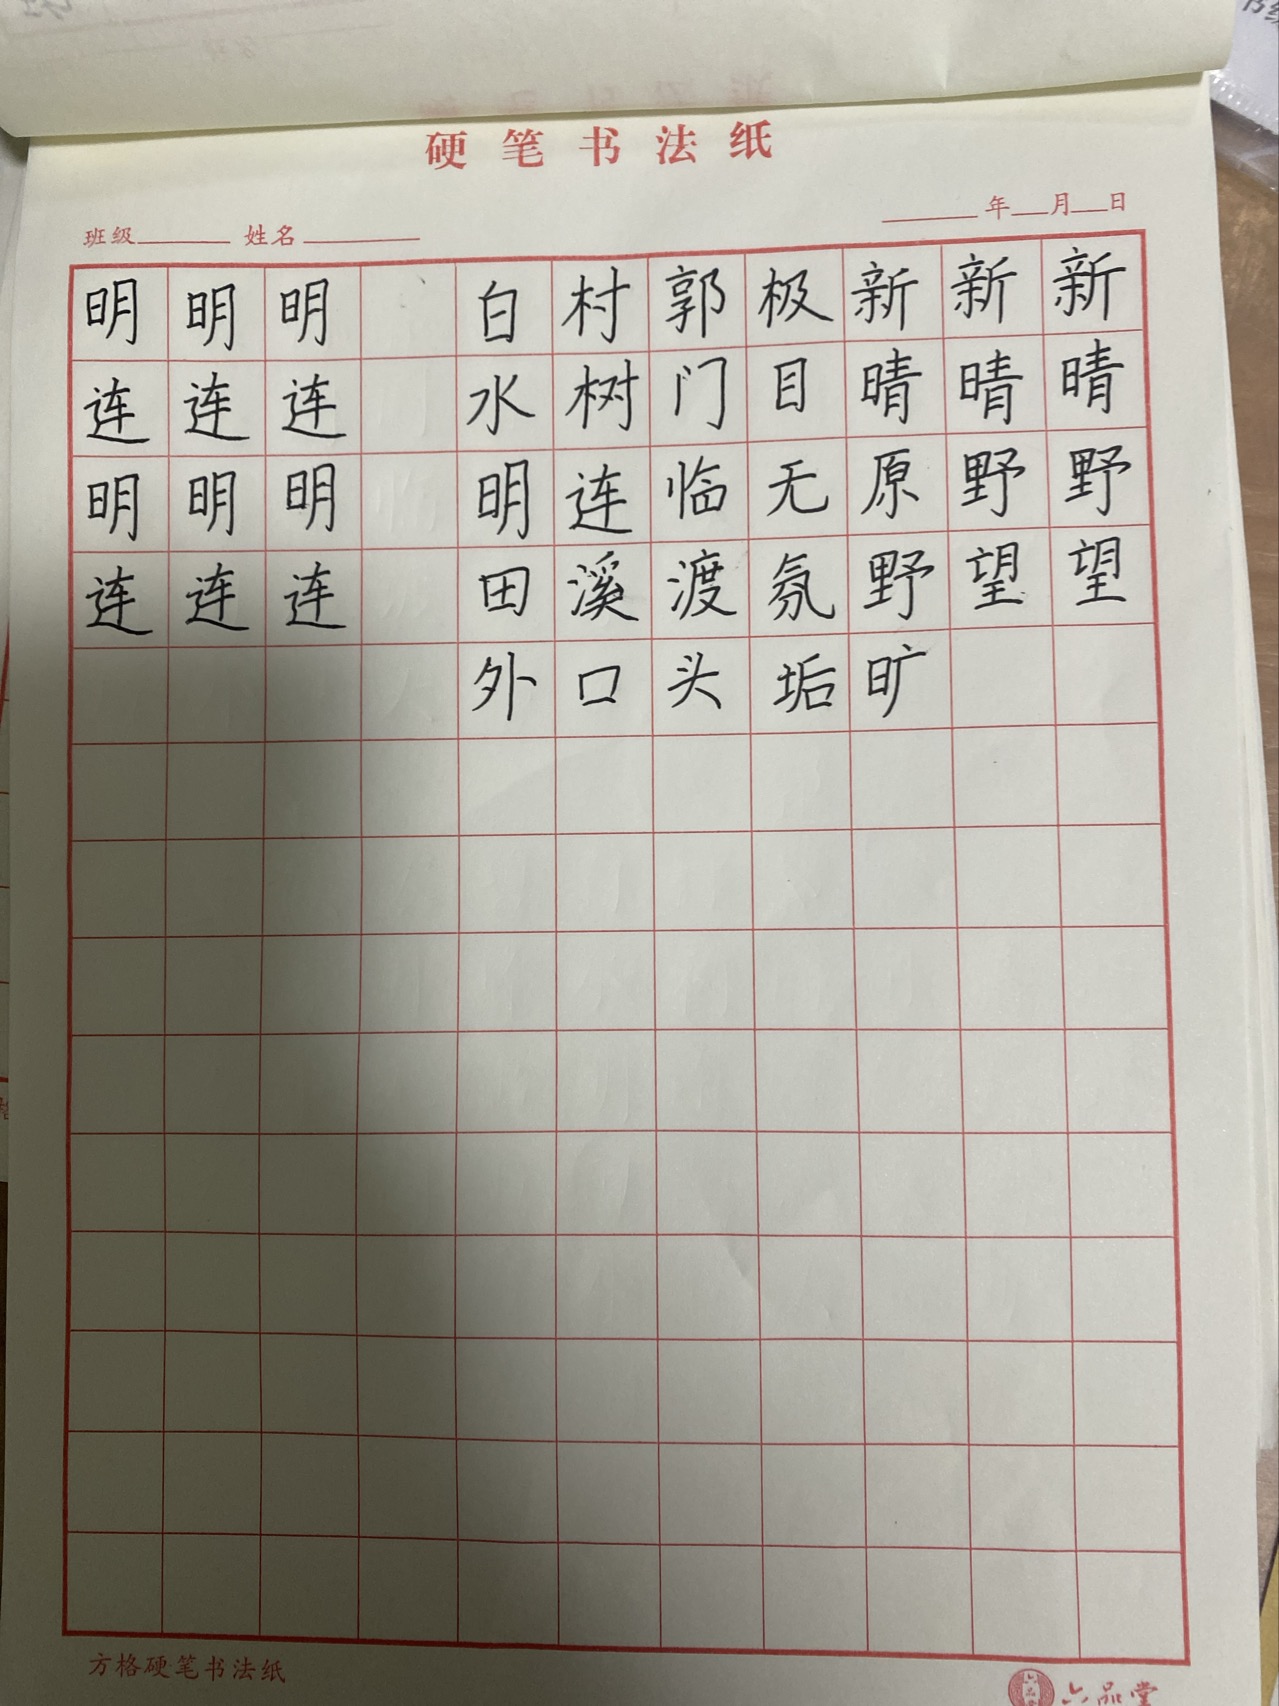 硬笔书法纸
班级 姓名 年 月 日
新晴野望
新晴野望
新晴原野旷
极目无氛垢
郭门临渡头
村树连溪口
白水明田外
明连明连
明连明连
明连明连
方格硬笔书法纸
六品堂